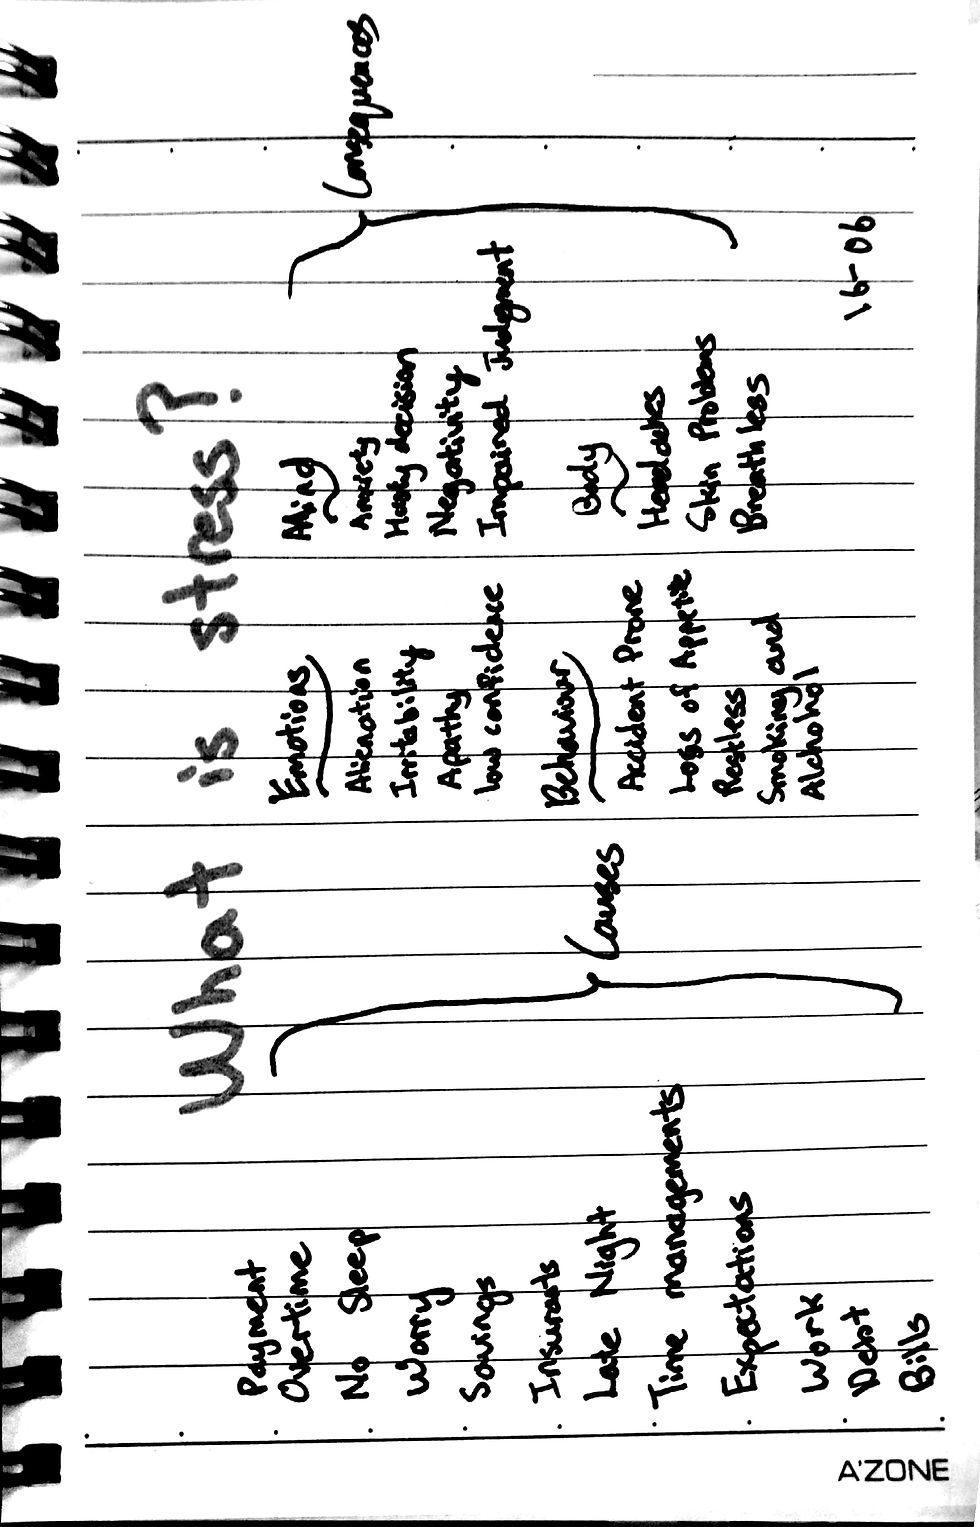 What is stress?
Payment
Overtime
No Sleep
Worry
Savings
Insurants
Late Night
Time managements
Expectations
Work
Debt
Bills
Causes
Emotions
Alienation
Irritability
Apathy
low confidence
Behaviour
Accident Prone
Loss of Appetite
Restless
Smoking and
Alchohol
Mind
Anxiety
Hasty decision
Negativity
Impaired Judgment
Body
Headaches
Skin Problems
Breathless
Consequences
16-06
A'ZONE